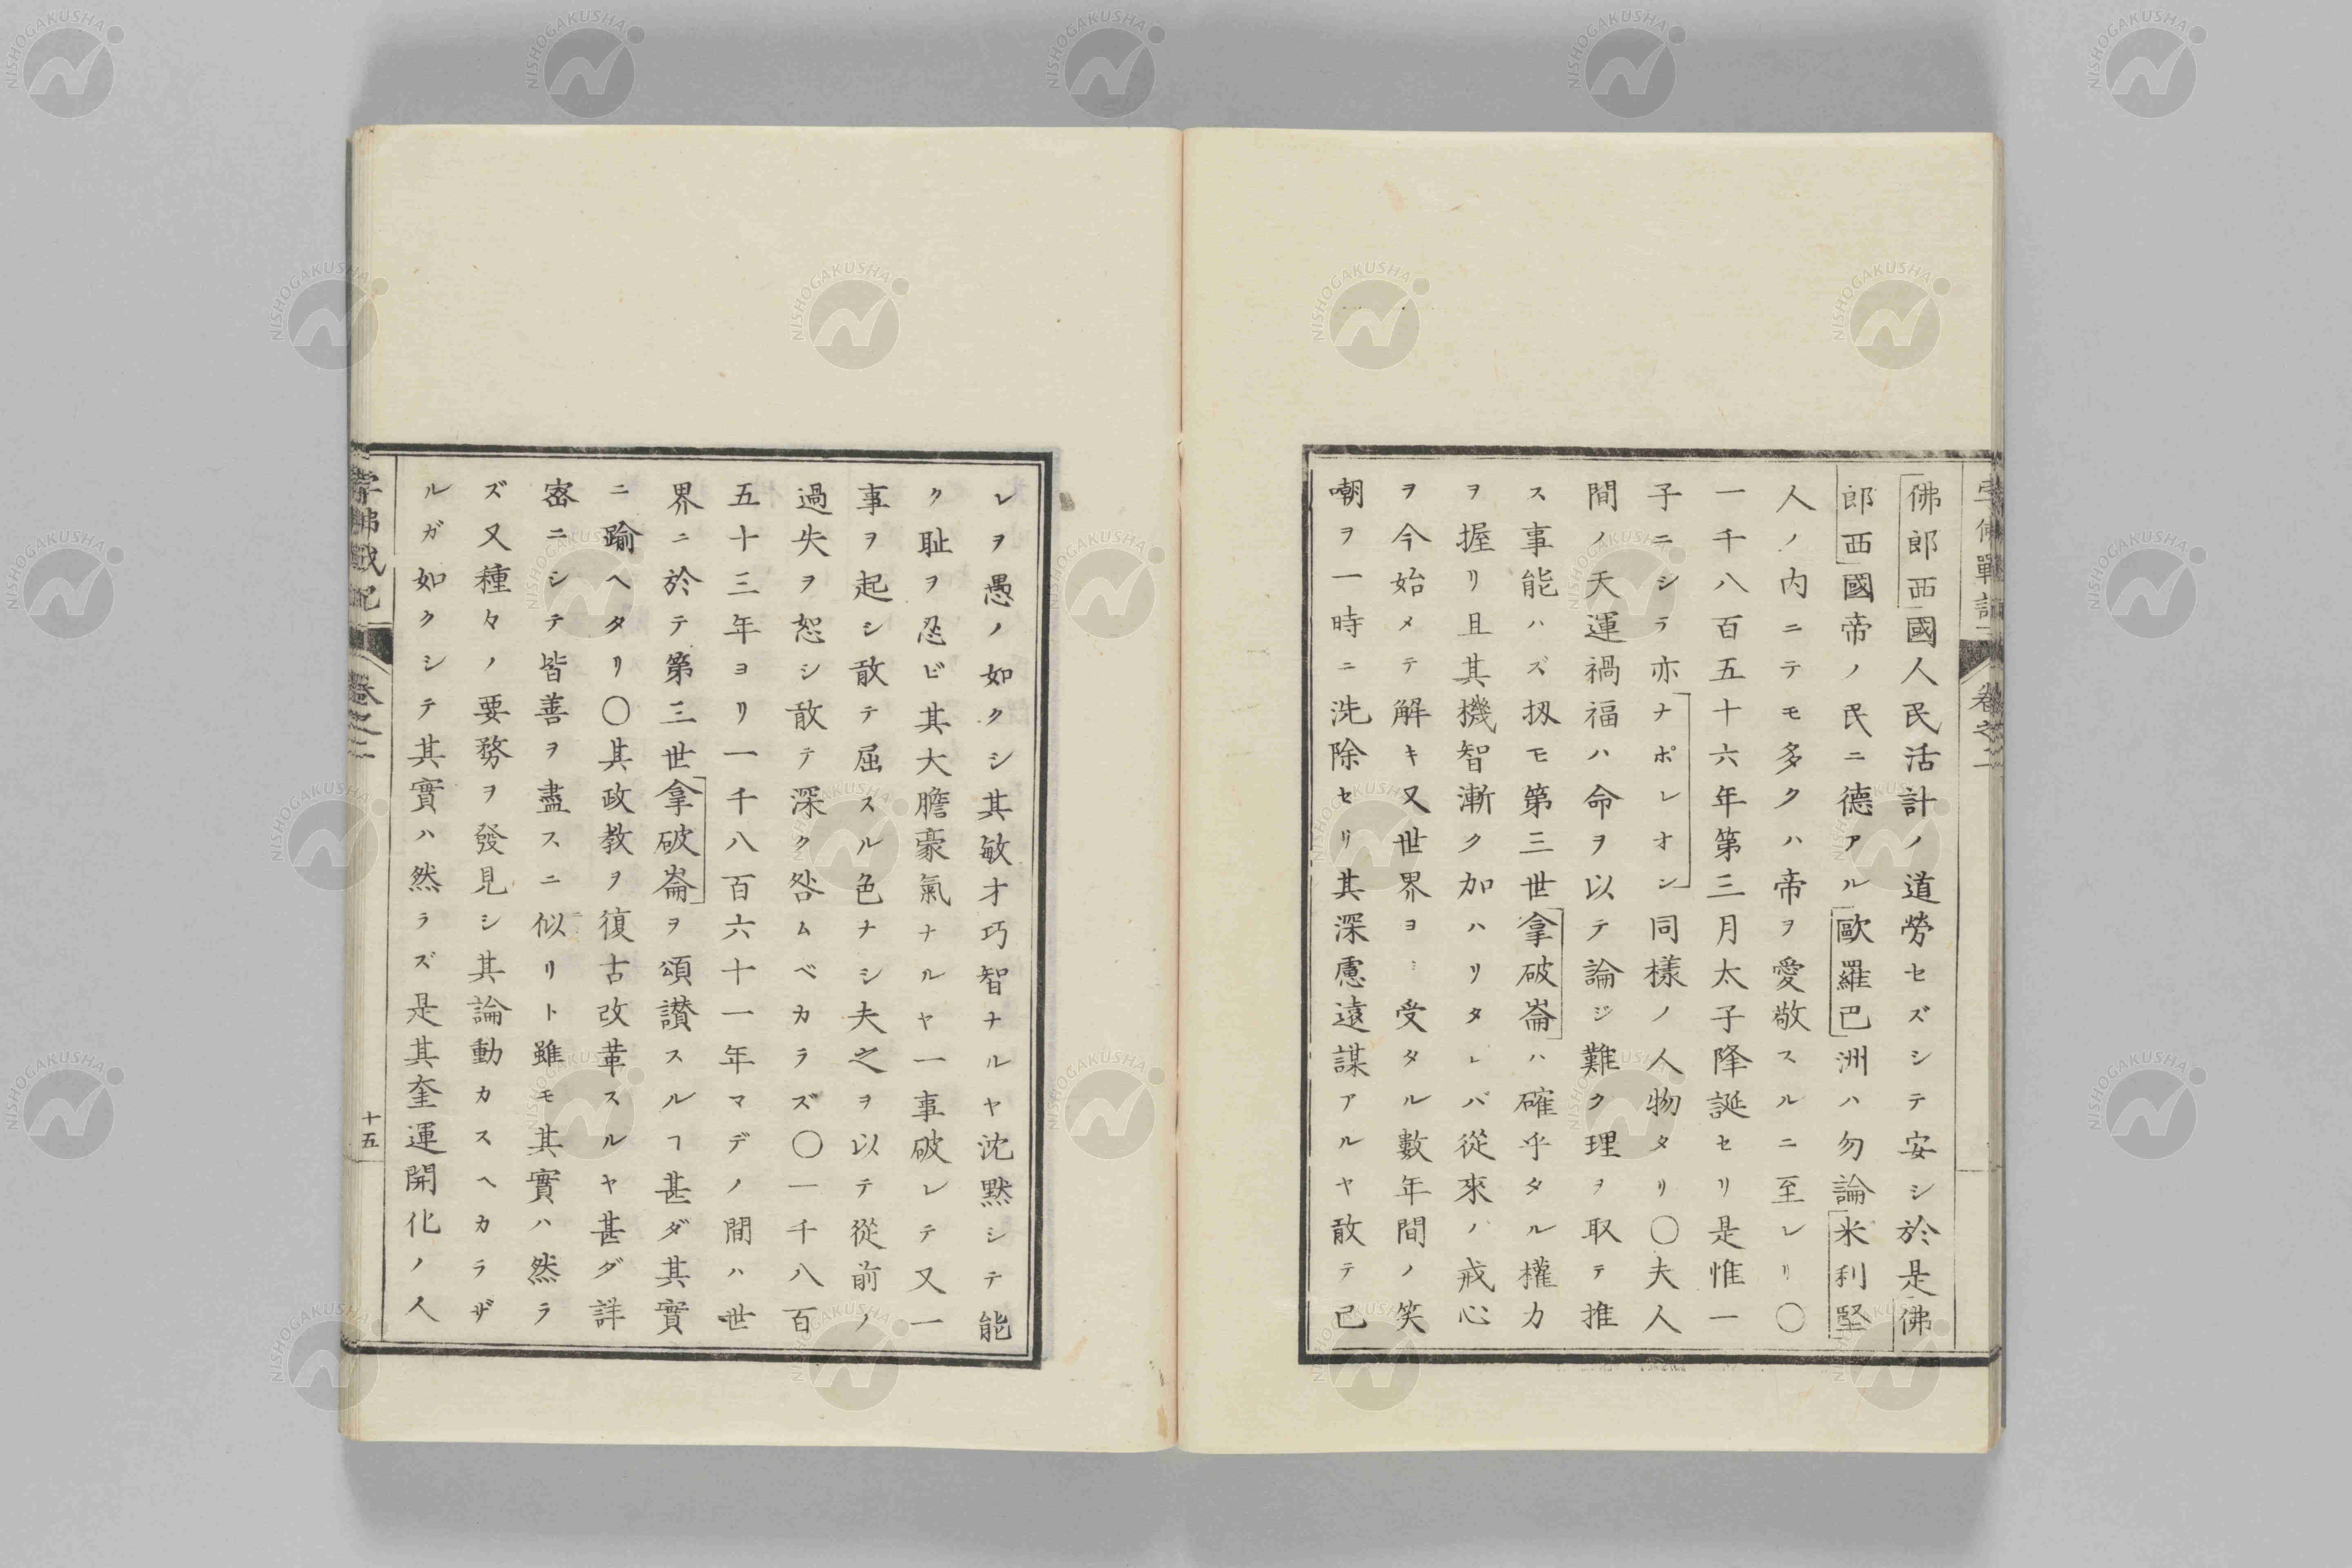 佛郎西國人民活計ノ道勞セズシテ安シ於是佛
郎西國帝ノ民ニ德アル歐羅巴洲ハ勿論米利堅
人ノ内ニテモ多クハ帝ヲ愛敬スルニ至レリ〇
一千八百五十六年第三月太子降誕セリ是惟一
子ニシラ亦ナポレオン同樣ノ人物タリ〇夫人
間ノ天運禍福ハ命ヲ以テ論ジ難ク理ヲ取テ推
ス事能ハズ扨モ第三世拿破崙ハ確乎タル權力
ヲ握リ且其機智漸ク加ハリタレバ從來ノ戒心
ヲ今始メテ解キ又世界ヨミ受タル數年間ノ笑
嘲ヲ一時ニ洗除セリ其深慮遠謀アルヤ敢テ己
レヲ愚ノ如クシ其敏才巧智ナルヤ沈黙シテ能
ク耻ヲ忍ビ其大膽豪氣ナルヤ一事破レテ又一
事ヲ起シ敢テ屈スル色ナシ夫之ヲ以テ從前ノ
過失ヲ恕シ敢テ深ク咎ムベカラズ〇一千八百
五十三年ヨリ一千八百六十一年マデノ間ハ世
界ニ於テ第三世拿破崙ヲ頌讃スルヿ甚ダ其實
ニ踰ヘタリ〇其政教ヲ復古改革スルヤ甚ダ詳
密ニシテ皆善ヲ盡スニ似リト雖モ其實ハ然ラ
ズ又種々ノ要務ヲ發見シ其論動カスヘカラザ
ルガ如クシテ其實ハ然ラズ是其奎運開化ノ人
卷之二
十五
NISHOGAKUSHA